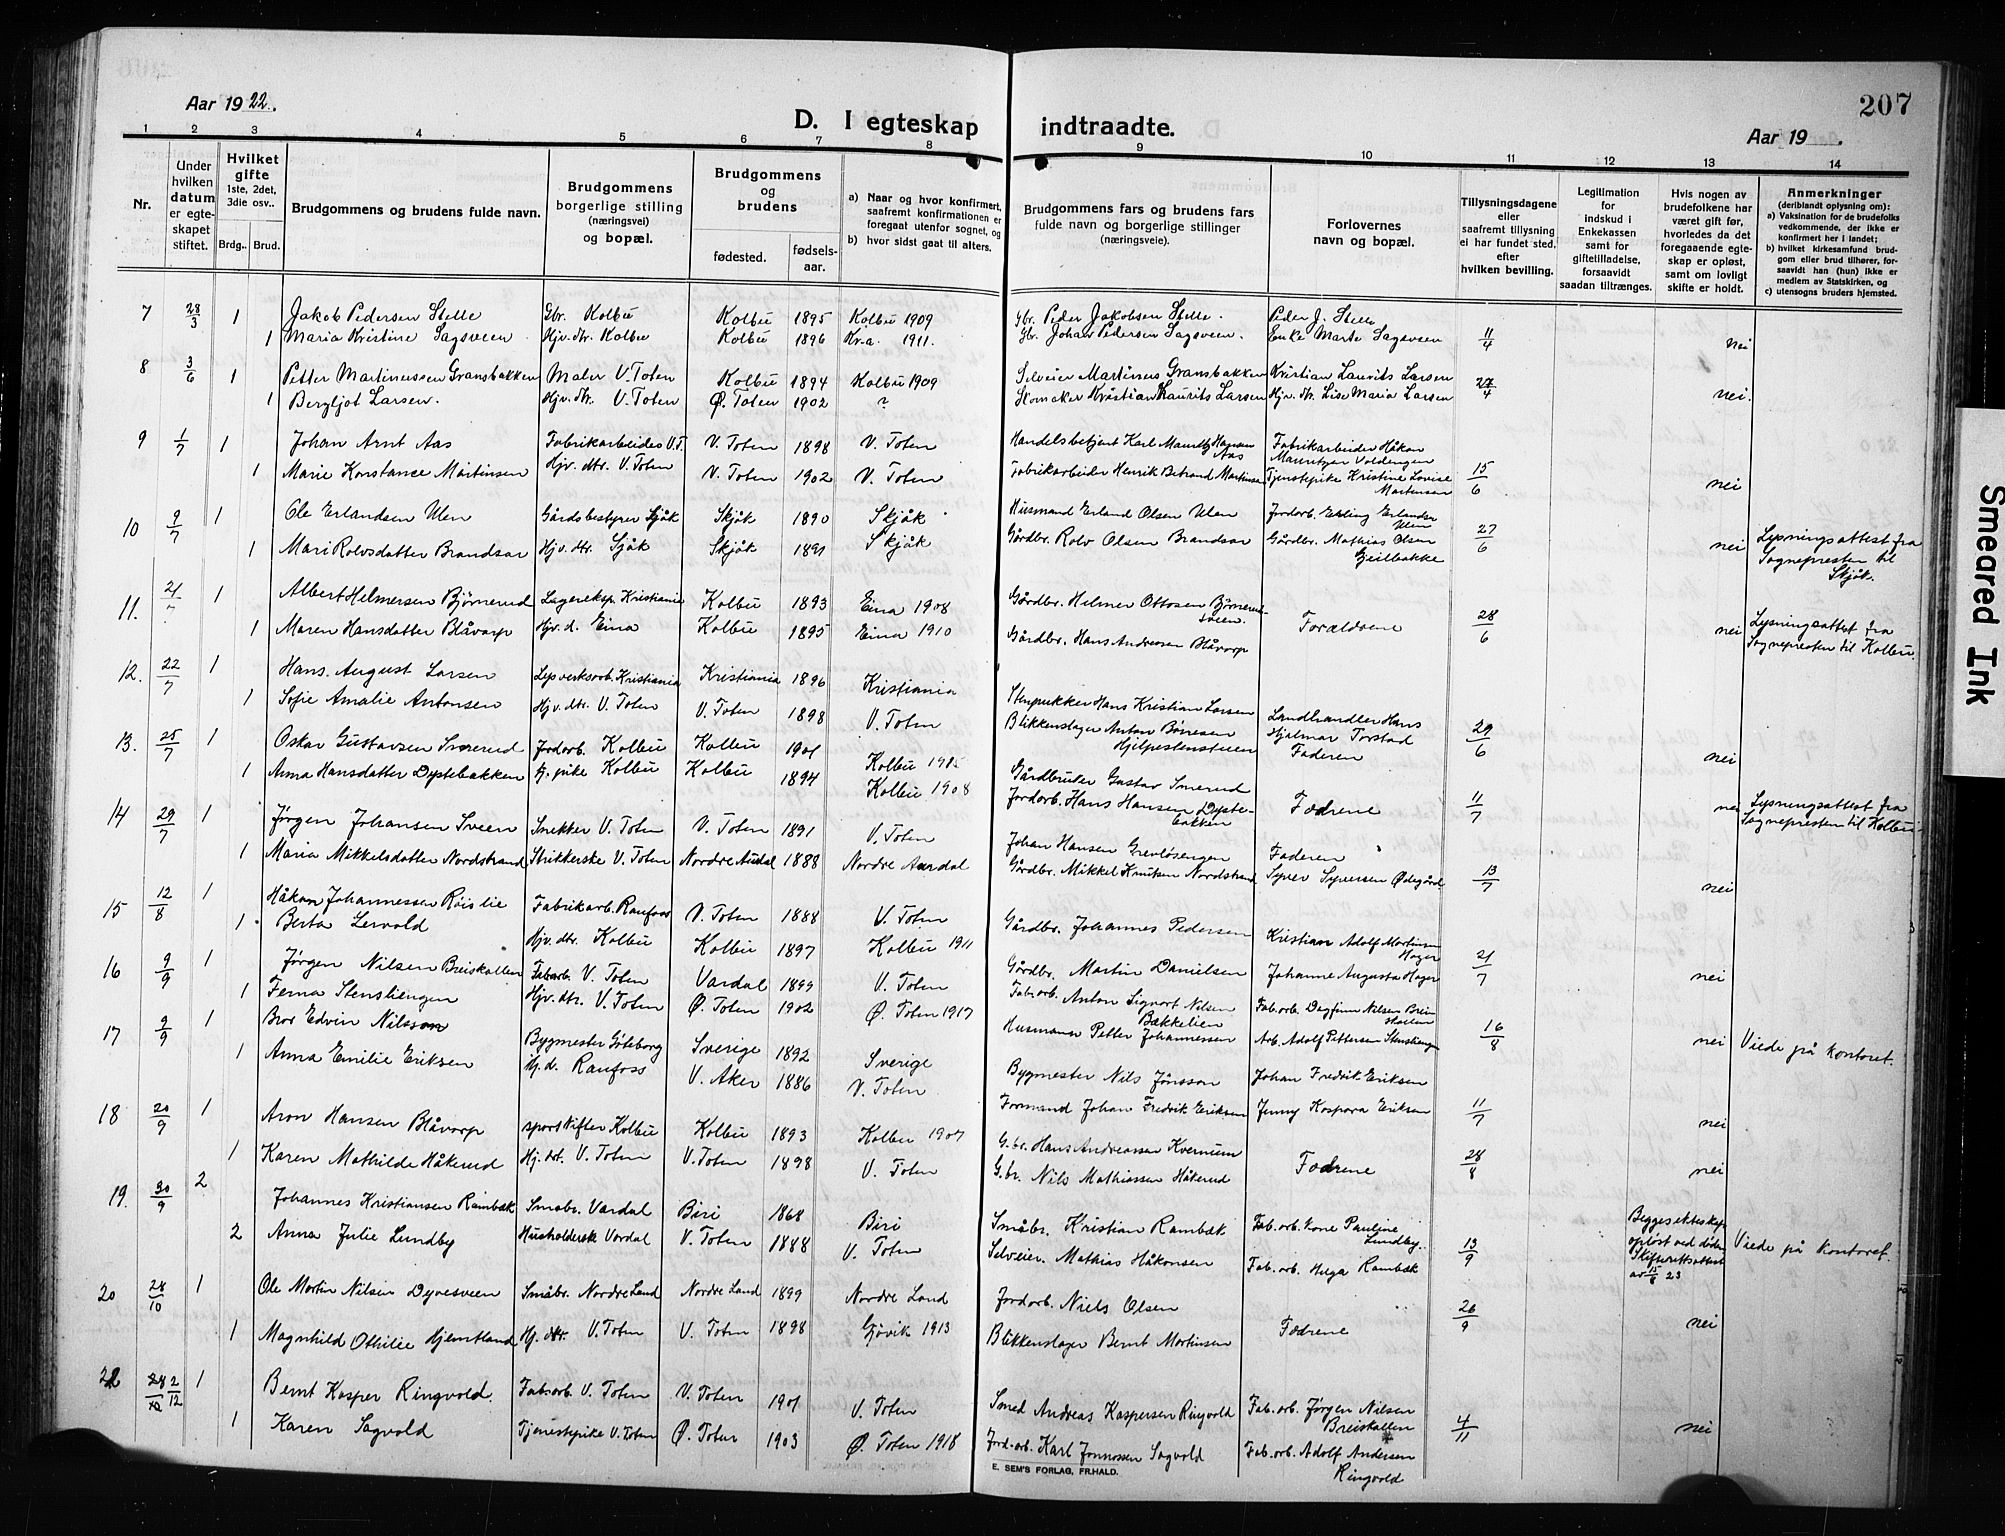 207
Aar 1922.
D. I egteskap indtraadte.
Aar 19 .
1 2 3 4 5 6 7 8 9 10 11 12 13 14
Nr.
Under hvilken datum er egteskapet stiftet.
Hvilket gifte 1ste, 2det, 3die osv..
Brdg.. Brud.
Brudgommens og brudens fulde navn.
Brudgommens borgerlige stilling (næringsvei) og bopæl.
Brudgommens og brudens
fødested. fødsels-aar.
a) Naar og hvor konfirmert, saafremt konfirmationen er foregaat utenfor sognet, og
b) hvor sidst gaat til alters.
Brudgommens fars og brudens fars fulde navn og borgerlige stillinger (næringsveie).
Forlovernes navn og bopæl.
Tillysningsdagene eller saafremt tillysning ei har fundet sted, efter hvilken bevilling.
Legitimation for indskud i Enkekassen samt for giftetilladelse, forsaavidt saadan tiltrænges.
Hvis nogen av brudefolkene har været gift før, hvorledes da det foregaaende egteskap er opløst, samt om lovligt skifte er holdt.
Anmerkninger (deriblandt oplysning om):
a) Vaksination for de brudefolks vedkommende, der ikke er konfirmert her i landet;
b) hvilket kirkesamfund brudgom eller brud tilhører, forsaavidt han (hun) ikke er medlem av Statskirken, og
c) utensogns bruders hjemsted.
7 28/3 1 Jakob Pedersen Stelle Gbr. Kolbu Kolbu 1895 Kolbu 1909 Gbr. Peder Jakobsen Stelle. Peder J. Stelle
1 Maria Kristine Sagsveen Hjv. dtr. Kolbu Kolbu 1896 Kr.a. 1911. Gbr. Johan Pedersen Sagsveen. Enke Marte Sagsveen 11/4 nei
8 3/6 1 Petter Martinussen Gransbakken Maler V. Toten Kolbu 1894 Kolbu 1909 Selveier Martinus Gransbakken Kristian Laurits Larsen
1 Bergljot Larsen. Hjv. dtr. V. Toten Ø. Toten 1902 ? Skomaker Kristian Laurits Larsen Hjv. dtr. Lise Maria Larsen 27/4 nei.
9 1/7 1 Johan Arnt Aas Fabrikarbeider V.T. V. Toten 1898 V. Toten Handelsbetjent Karl Mauritz Hansen Aas Fabrikarbeider Håkon Mauritzen Voldengen
1 Marie Konstance Martinsen Hjv. dtr. V. Toten V. Toten 1902 V. Toten Fabrikarbeider Henrik Betrand Martinsen Tjenestepike Kristine Lovise Martensen 15/6 nei
10 9/7 1 Ole Erlandsen Ulen Gårdsbestyrer Sjåk Skjåk 1890 Skjåk Husmand Erland Olsen Ulen Jordarb. Erling Erlandsen Ulen
1 Mari Rolvsdatter Brandsar Hjv. dtr. Sjåk Skjåk 1891 Skjåk Gårdbr. Rolv Olsen Brandsar Gårdbr. Mathias Olsen Geilbakke 27/6 nei Lysningsattest fra Sognepresten til Skjåk.
11. 21/7 1 Albert Helmersen Bjørnerud Lagereksp. Kristiania Kolbu 1893 Eina 1908 Gårdbr. Helmer Ottosen Bjørnerudsveen.
1 Maren Hansdatter Blåvarp Hjv. d. Eina Kolbu 1895 Eina 1910 Gårdbr. Hans Andreasen Blåvarp Forældrene 28/6 nei Lysningsattest fra Sognepresten til Kolbu.
12. 22/7 1 Hans August Larsen Lysverksarb. Kristiania Kristiania 1896 Kristiania Stenpukker Hans Kristian Larsen Landhandler Hans Hjalmar Torstad
1 Sofie Amalie Antonsen Hjv. dtr. V. Toten V. Toten 1898 V. Toten Blikkenslager Anton Børresen Hjelpestenstuen Faderen 29/6 nei
13. 25/7 1 Oskar Gustavsen Smerud Jordarb. Kolbu Kolbu 1901 Kolbu 1915 Gårdbruker Gustav Smerud
1 Anna Hansdatter Dystebakken tj. pike Kolbu Kolbu 1894 Kolbu 1908 Jordarb. Hans Hansen Dystebakken Fædrene 11/7 nei Lysningsattest fra Sognepresten til Kolbu
14 29/7 1 Jørgen Johansen Sveen Snekker V. Toten V. Toten 1891 V. Toten Johan Hansen Grevlosengen Faderen
1 Maria Mikkelsdatter Nordstrand Strikkerske V. Toten Nordre Aurdal 1888 Nordre Aurdal Gårdbr. Mikkel Knutsen Nordstrand Syver Syversen Ødegård 13/7 nei
15 12/8 1 Håkon Johannessen Røislie Fabrikarb. Raufoss V. Toten 1888 V. Toten Gårdbr. Johannes Pedersen Kristian Adolf Martinsen Hager
1 Berta Lervold Hjv. dtr. Kolbu Kolbu 1897 Kolbu 1911 Gårdbr. Martin Danielsen Johanne Augusta Hager 21/7 nei
16 9/9 1 Jørgen Nilsen Breiskallen Fabarb. V. Toten Vardal 1899 V. Toten Fab. arb. Anton Sigvart Nilsen Bækkelien Fab. orb. Dagfinn Nilsen Breiskallen
1 Ferna Stensliengen Hjv. dtr. V. Toten Ø. Toten 1902 Ø. Toten 1917 Husmann Petter Johannessen Arb. Adolf Pettersen Stenslienge 16/8 nei Viede på kontoret.
17 9/9 1 Bror Edvin Nilsson Bygmester Göteborg Sverige 1892 Sverige Bygmester Nils Jönsson Johan Fredrik Eriksen
1 Anna Emilie Eriksen Hj. d. Raufoss V. Aker 1886 V. Toten Formand Johan Fredrik Eriksen Jenny Kaspara Eriksen 11/7 nei
18 20/9 1 Aron Hansen Blåvarp sporskifter Kolbu Kolbu 1893 Kolbu 1907 G. br. Hans Andreassen Kvernum
1 Karen Mathilde Håkerud Hj. dt. V. Toten V. Toten 1898 V. Toten G. br. Nils Mathiassen Håkerud Fædrene 28/8 nei
19. 30/9 2 Johannes Kristiansen Rambæk Småbr. Vardal Biri 1868 Biri Småbr. Kristian Rambæk Fab. arb. kone Pauline Lundby.
2 Anna Julie Lundby Husholdersk Vardal V. Toten 1888 V. Toten Selveier. Mathias Håkonsen Fab. arb. Helga Rambæk 13/9 Begges ekteskap opløst ved døden Skifterettsattest av 15/8 23 Viede på kontoret.
20 28/10 1 Ole Martin Nilsen Dyvesveen Småbr. Nordre Land Nordre Land 1899 Nordre Land Jordarb. Niels Olsen
1 Magnhild Othilie Hjemtland Hj. dtr. V. Toten V. Toten 1898 Gjøvik 1913 Blikkenslager Bernt Martinsen Fædrene 26/9 nei
22 2/12 1 Bernt Kasper Ringvold. Fab. arb. V. Toten V. Toten 1901 V. Toten Smed Andreas Kaspersen Ringvold Fab. orb. Jørgen Nilsen Breiskallen
1 Karen Sagvold Tjenestepike V. Toten Ø. Toten 1903 Ø. Toten 1918 Jord. arb. Karl Jonnassen Sagvold Fab. orb. Adolf Andersen Ringvold 4/11 nei
E. SEM'S FORLAG, FR.HALD.
Smeared Ink